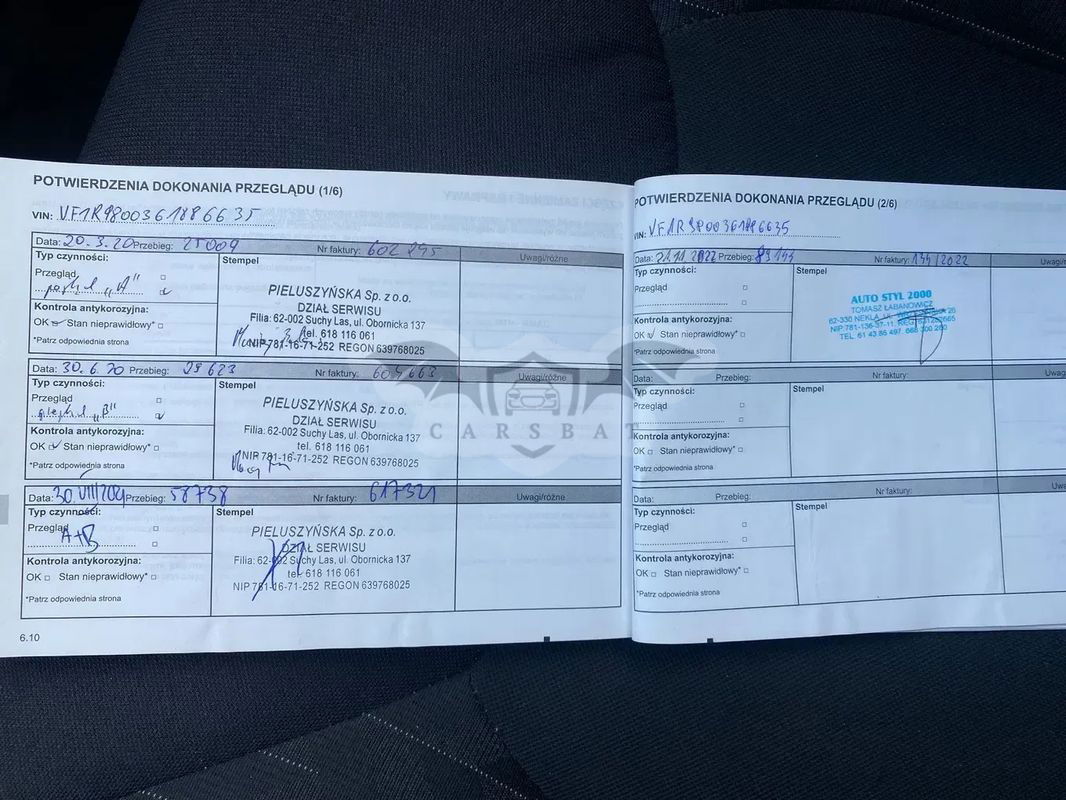 POTWIERDZENIA DOKONANIA PRZEGLĄDU (1/6)
VIN: VF1R9800361886635
Data: 20.3.20 Przebieg: 25009 Nr faktury: 602295 Uwagi/różne
Typ czynności: Stempel
Przegląd
"A"
Kontrola antykorozyjna:
OK Stan nieprawidłowy*
*Patrz odpowiednia strona
PIELUSZYŃSKA Sp. z o.o.
DZIAŁ SERWISU
Filia: 62-002 Suchy Las, ul. Obornicka 137
tel. 618 116 061
NIP 781-16-71-252 REGON 639768025
Data: 30.6.20 Przebieg: 29623 Nr faktury: 604663 Uwagi/różne
Typ czynności: Stempel
Przegląd
"B"
Kontrola antykorozyjna:
OK Stan nieprawidłowy*
*Patrz odpowiednia strona
PIELUSZYŃSKA Sp. z o.o.
DZIAŁ SERWISU
Filia: 62-002 Suchy Las, ul. Obornicka 137
tel. 618 116 061
NIP 781-16-71-252 REGON 639768025
Data: 30.VIII/2021 Przebieg: 58738 Nr faktury: 617321 Uwagi/różne
Typ czynności: Stempel
Przegląd
A+B
Kontrola antykorozyjna:
OK Stan nieprawidłowy*
*Patrz odpowiednia strona
PIELUSZYŃSKA Sp. z o.o.
DZIAŁ SERWISU
Filia: 62-002 Suchy Las, ul. Obornicka 137
tel. 618 116 061
NIP 781-16-71-252 REGON 639768025
6.10
POTWIERDZENIA DOKONANIA PRZEGLĄDU (2/6)
VIN: VF1R9800361886635
Data: 21.11.2022 Przebieg: 83155 Nr faktury: 135/2022
Typ czynności: Stempel
Przegląd
Kontrola antykorozyjna:
OK Stan nieprawidłowy*
*Patrz odpowiednia strona
AUTO STYL 2000
TOMASZ ŁABANOWICZ
62-330 NEKLA, UL.
NIP:781-136-37-11, REG.
TEL. 61 43 85 497,
Data: Przebieg: Nr faktury:
Typ czynności: Stempel
Przegląd
Kontrola antykorozyjna:
OK Stan nieprawidłowy*
*Patrz odpowiednia strona
Data: Przebieg: Nr faktury:
Typ czynności: Stempel
Przegląd
Kontrola antykorozyjna:
OK Stan nieprawidłowy*
*Patrz odpowiednia strona
CARSBAT